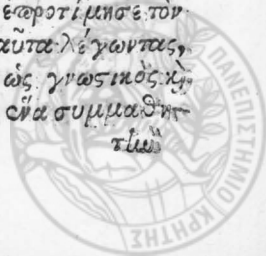 ἐπροτίμησε τὸν
αὖτα λέγωντας,
ὡς γνωστικὸς κὶ
ἕνα συμμαθη-
τὴν
ΠΑΝΕΠΙΣΤΗΜΙΟ ΚΡΗΤΗΣ